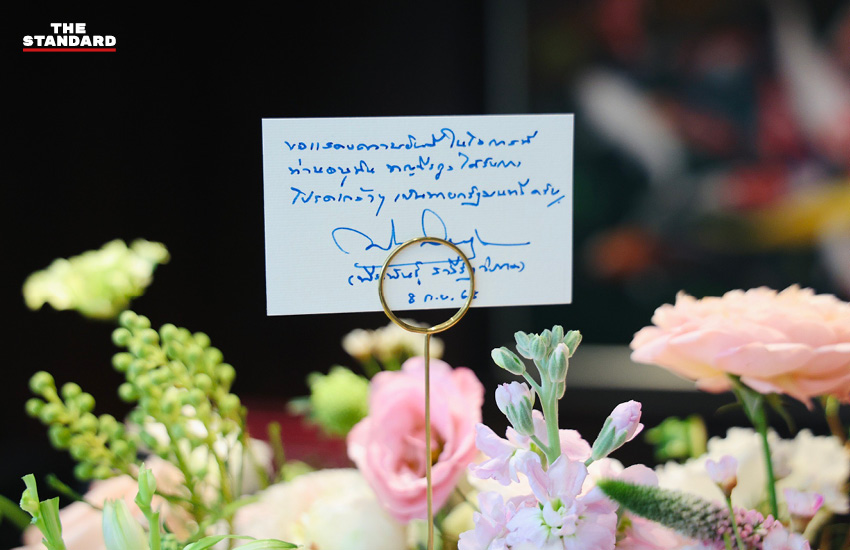 THE
STANDARD
ขอแสดงความยินดี ในโอกาสที่
ท่านอนุทิน ชาญวีรกูล ได้รับการ
โปรดเกล้าฯ เป็นนายกรัฐมนตรี ครับ
8 ก.ย. 68